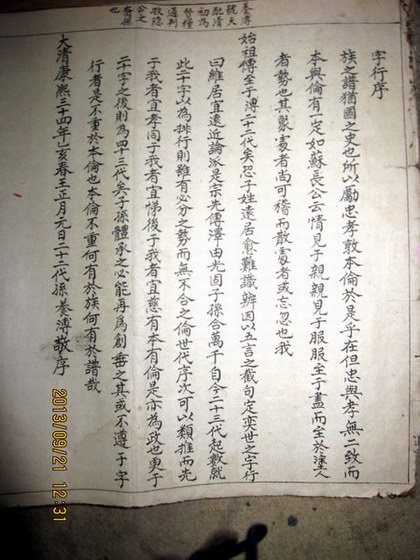 字行序
族之譜猶國之史也所以勵忠孝敦本倫於是乎在但忠與孝無二致而
本與倫有一定如蘇長公云情見于親親見于服服至于盡而至於塗人
者勢也其聚處者尚可稽而散處者或忘忽也我
始祖傳至子溥二十二代矣忽子姓遠居愈難識辨因以五言之截句定奕世之字行
曰維居宜遠近論派是宗先傳澤由光國子孫合萬千自今二十三代起數就
此二十字以為排行則雖有必分之勢而無不合之倫世代序次可以類推而先
乎我者宜孝同乎我者宜悌後乎我者宜慈有本有倫是亦為政也更于
二十字之後則為四十三代矣子孫體承之必能再為創垂之其或不遵于字
行者是不重於本倫也本倫不重何有於族何有於譜哉
大清康熙三十四年乙亥春王正月元日二十二代孫養溥敬序
養溥
號天
配清
初為
督糧
通判
敬隱
公之
裔孫
也
2013/09/21 12:31